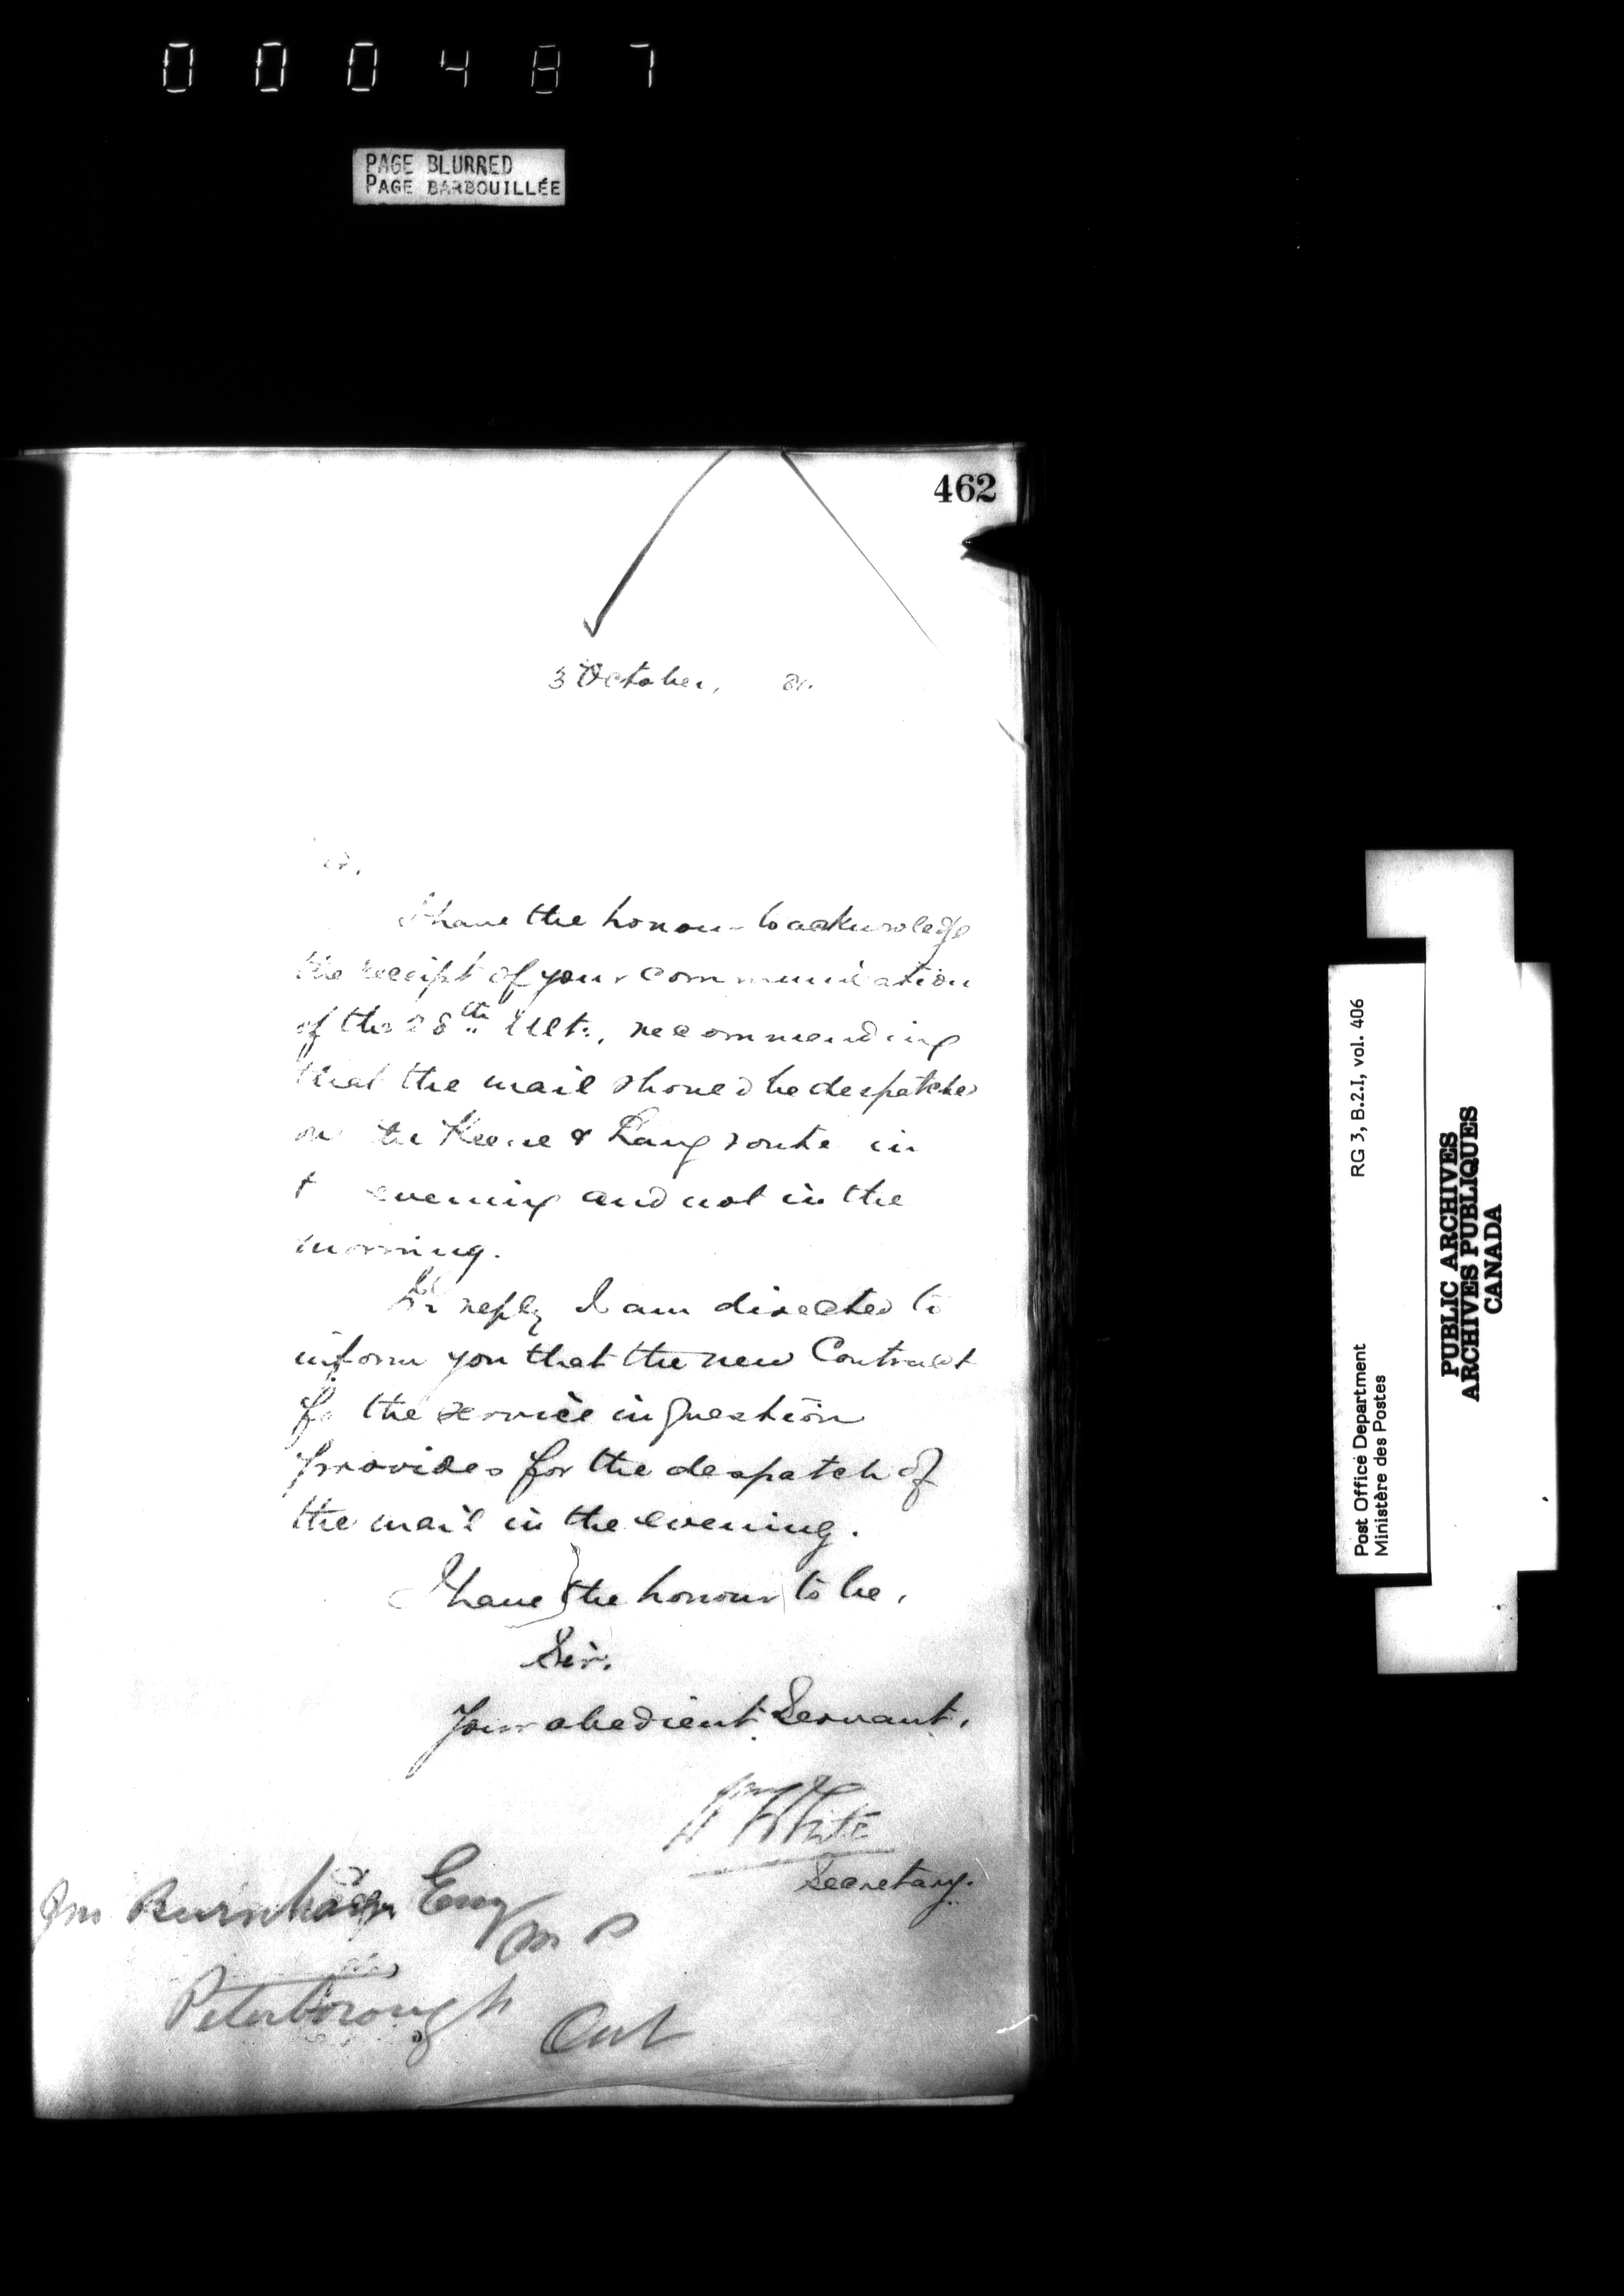 000487
PAGE BLURRED
PAGE BARBOUILLÉE
462
3 October, 81.
I have the honour to acknowledge
the receipt of your communication
of the 28th Ult., recommending
that the mail should be despatched
on the Keene & Lang route in
evening and not in the
morning.
In reply I am directed to
inform you that the new Contract
for the service in question
provides for the despatch of
the mail in the evening.
I have the honour to be,
Sir,
Your obedient Servant,
Wm White
Secretary.
Burnham Esq
M P
Peterborough
Ont
RG 3, B.2.I, vol. 406
Post Office Department
Ministère des Postes
PUBLIC ARCHIVES
ARCHIVES PUBLIQUES
CANADA